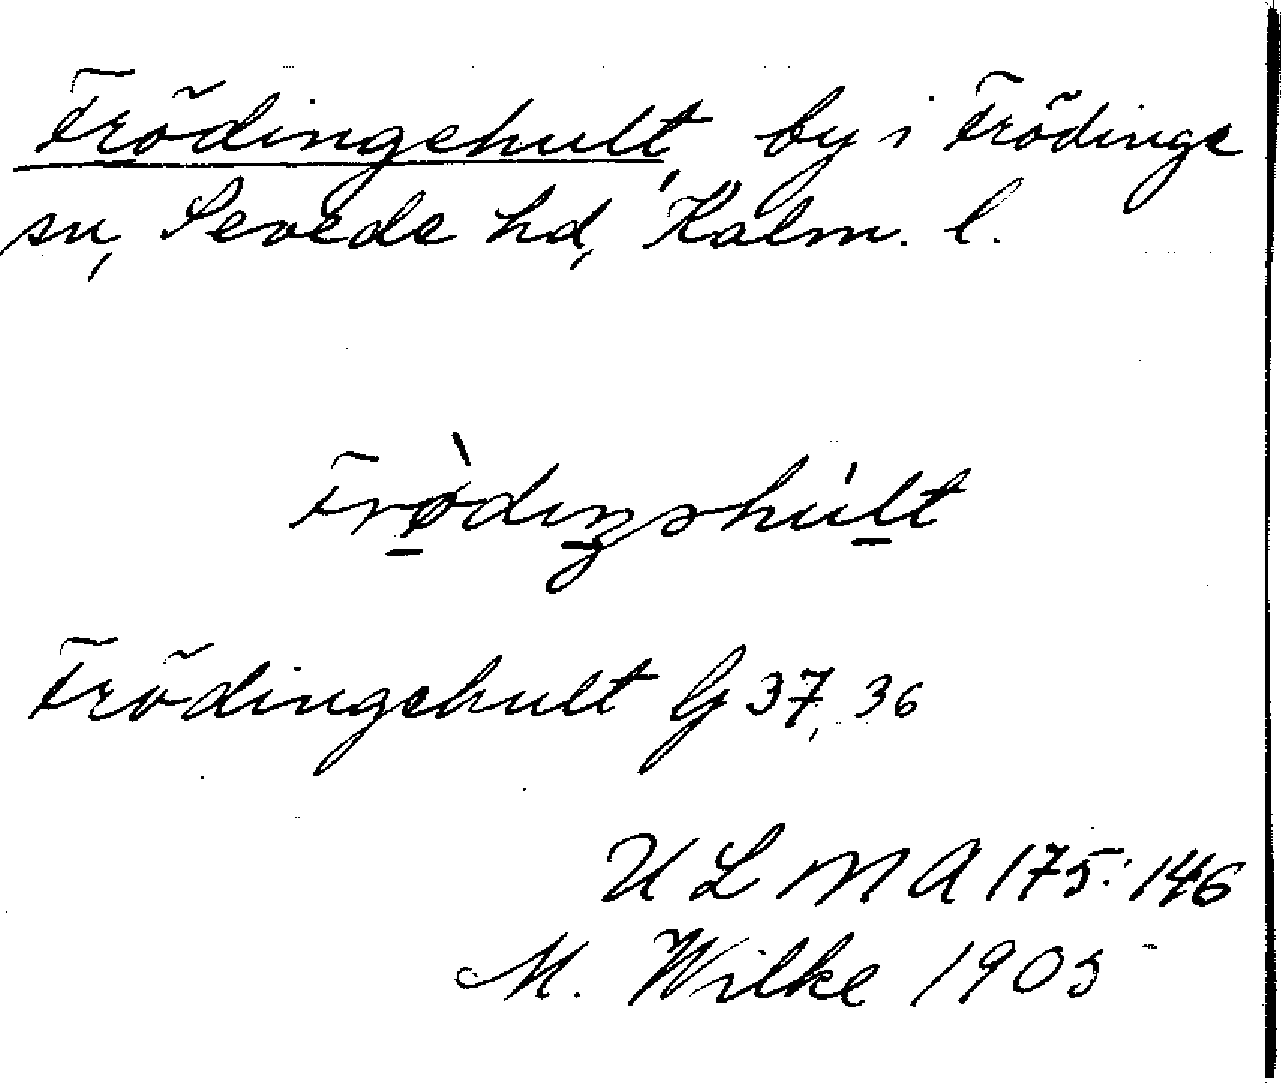 Frödingehult, by i Frödinge
sn, Sevede hd, Kalm. l.
Frödingehult G 37, 36
U L M A 175:146
M. Wilke 1905